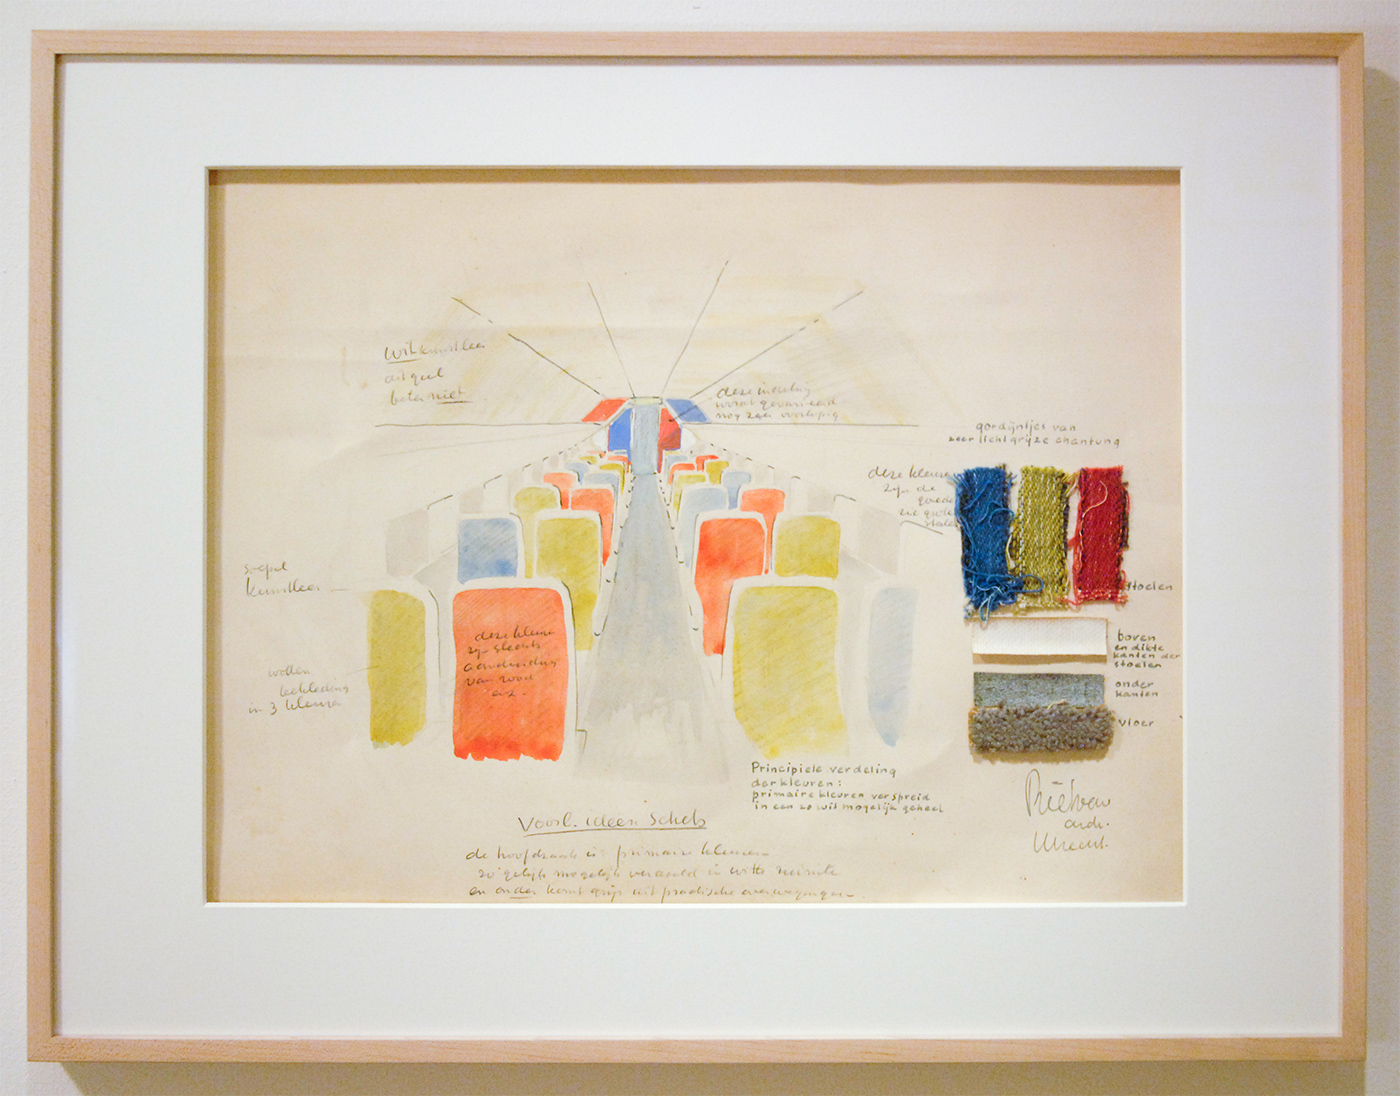 wit kunstleer
beter niet
deze indeling
wordt gevarieerd
nog zeer voorlopig
gordijntjes van
zeer licht grijze chantung
deze kleuren
zijn de
goede
zie grote
stalen
stoelen
soepel
kunstleer
boven
en dikte
kanten der
stoelen
onder
kanten
vloer
deze kleuren
zijn slechts
aanduiding
van rood
enz.
wollen
bekleding
in 3 kleuren
Principiele verdeling
der kleuren:
primaire kleuren verspreid
in een zo wit mogelijk geheel
Rietveld
arch.
Utrecht.
Voorl. ideeën schets
de hoofdzaak is: primaire kleuren
zo gelijk mogelijk verdeeld in witte ruimte
en onder komt grijs uit practische overwegingen